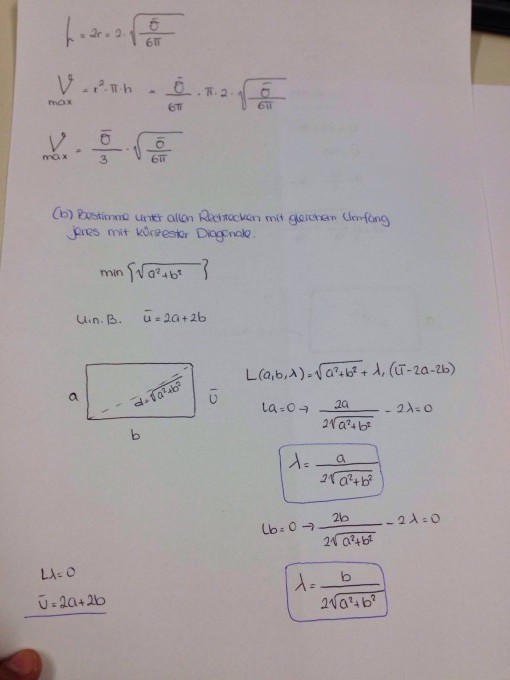 h = 2r = 2·√(Ō/6π)
V max = r²·π·h = Ō/6π · π · 2 · √(Ō/6π)
V max = Ō/3 · √(Ō/6π)
(b) Bestimme unter allen Rechtecken mit gleichem Umfang
jenes mit kürzester Diagonale.
min {√a²+b² }
u.n.B. ū = 2a+2b
a
d=√a²+b²
ū
b
L(a,b,λ) = √a²+b² + λ, (ū-2a-2b)
La=0 → 2a/2√a²+b² - 2λ=0
λ = a/2√a²+b²
Lb=0 → 2b/2√a²+b² - 2λ=0
λ = b/2√a²+b²
Lλ=0
ū=2a+2b